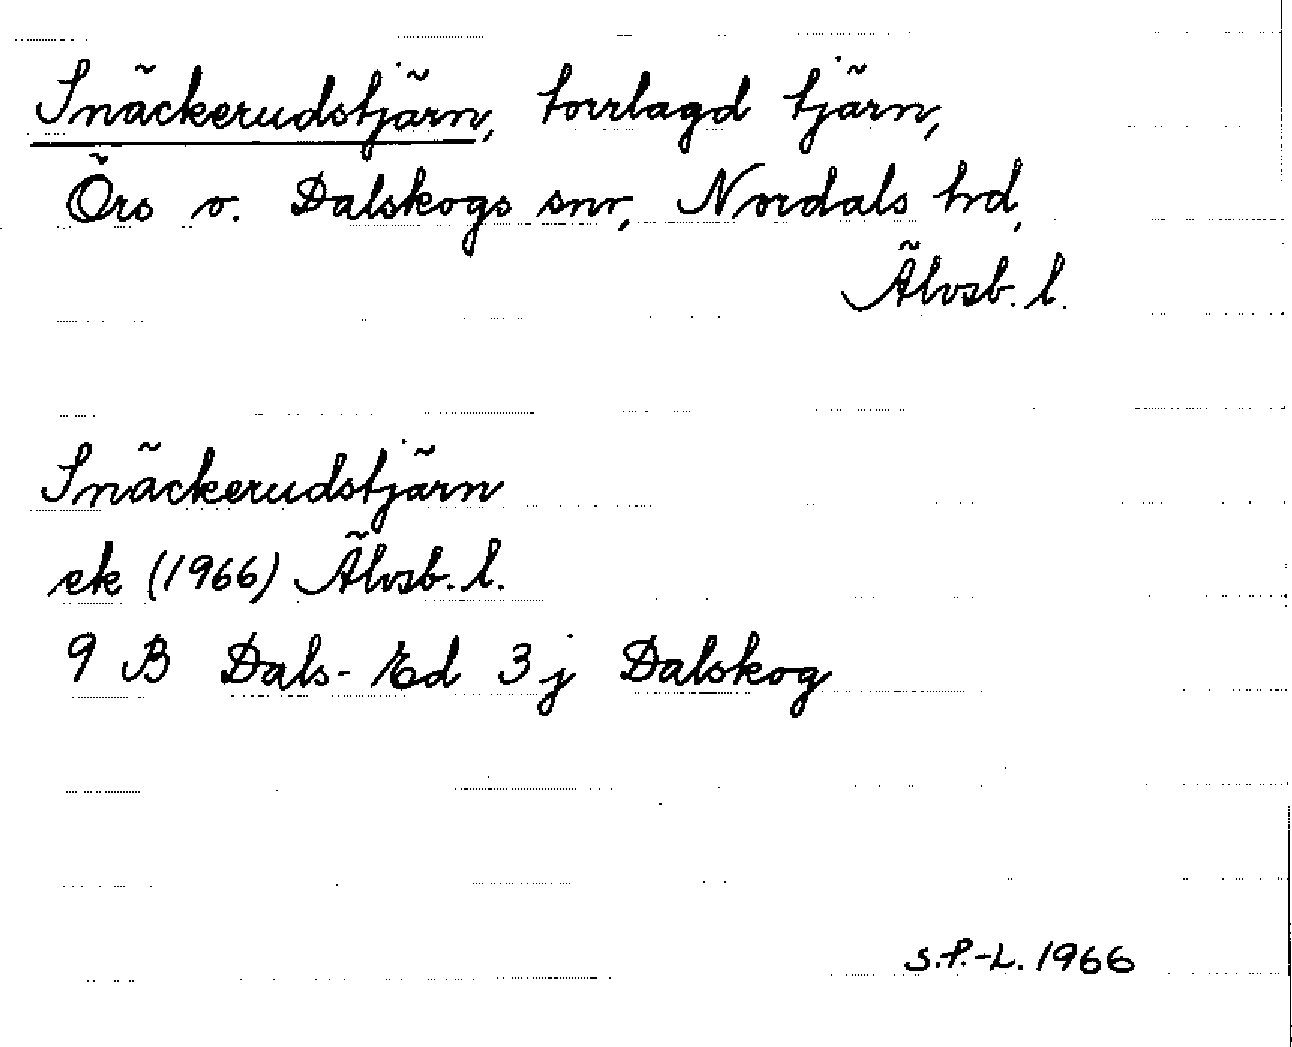 Snäckerudstjärn, torrlagd tjärn,
Örs o. Dalskogs snr, Nordals hd,
Älvsb. l.
Snäckerudstjärn
ek (1966) Älvsb. l.
9 B Dals-Ed 3 j Dalskog
S.P.-L. 1966